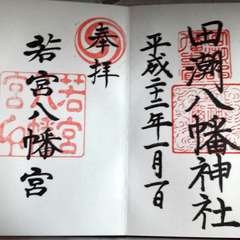 田潮八幡神社
平成二十二年一月一日
奉拝
若宮八幡宮
若宮